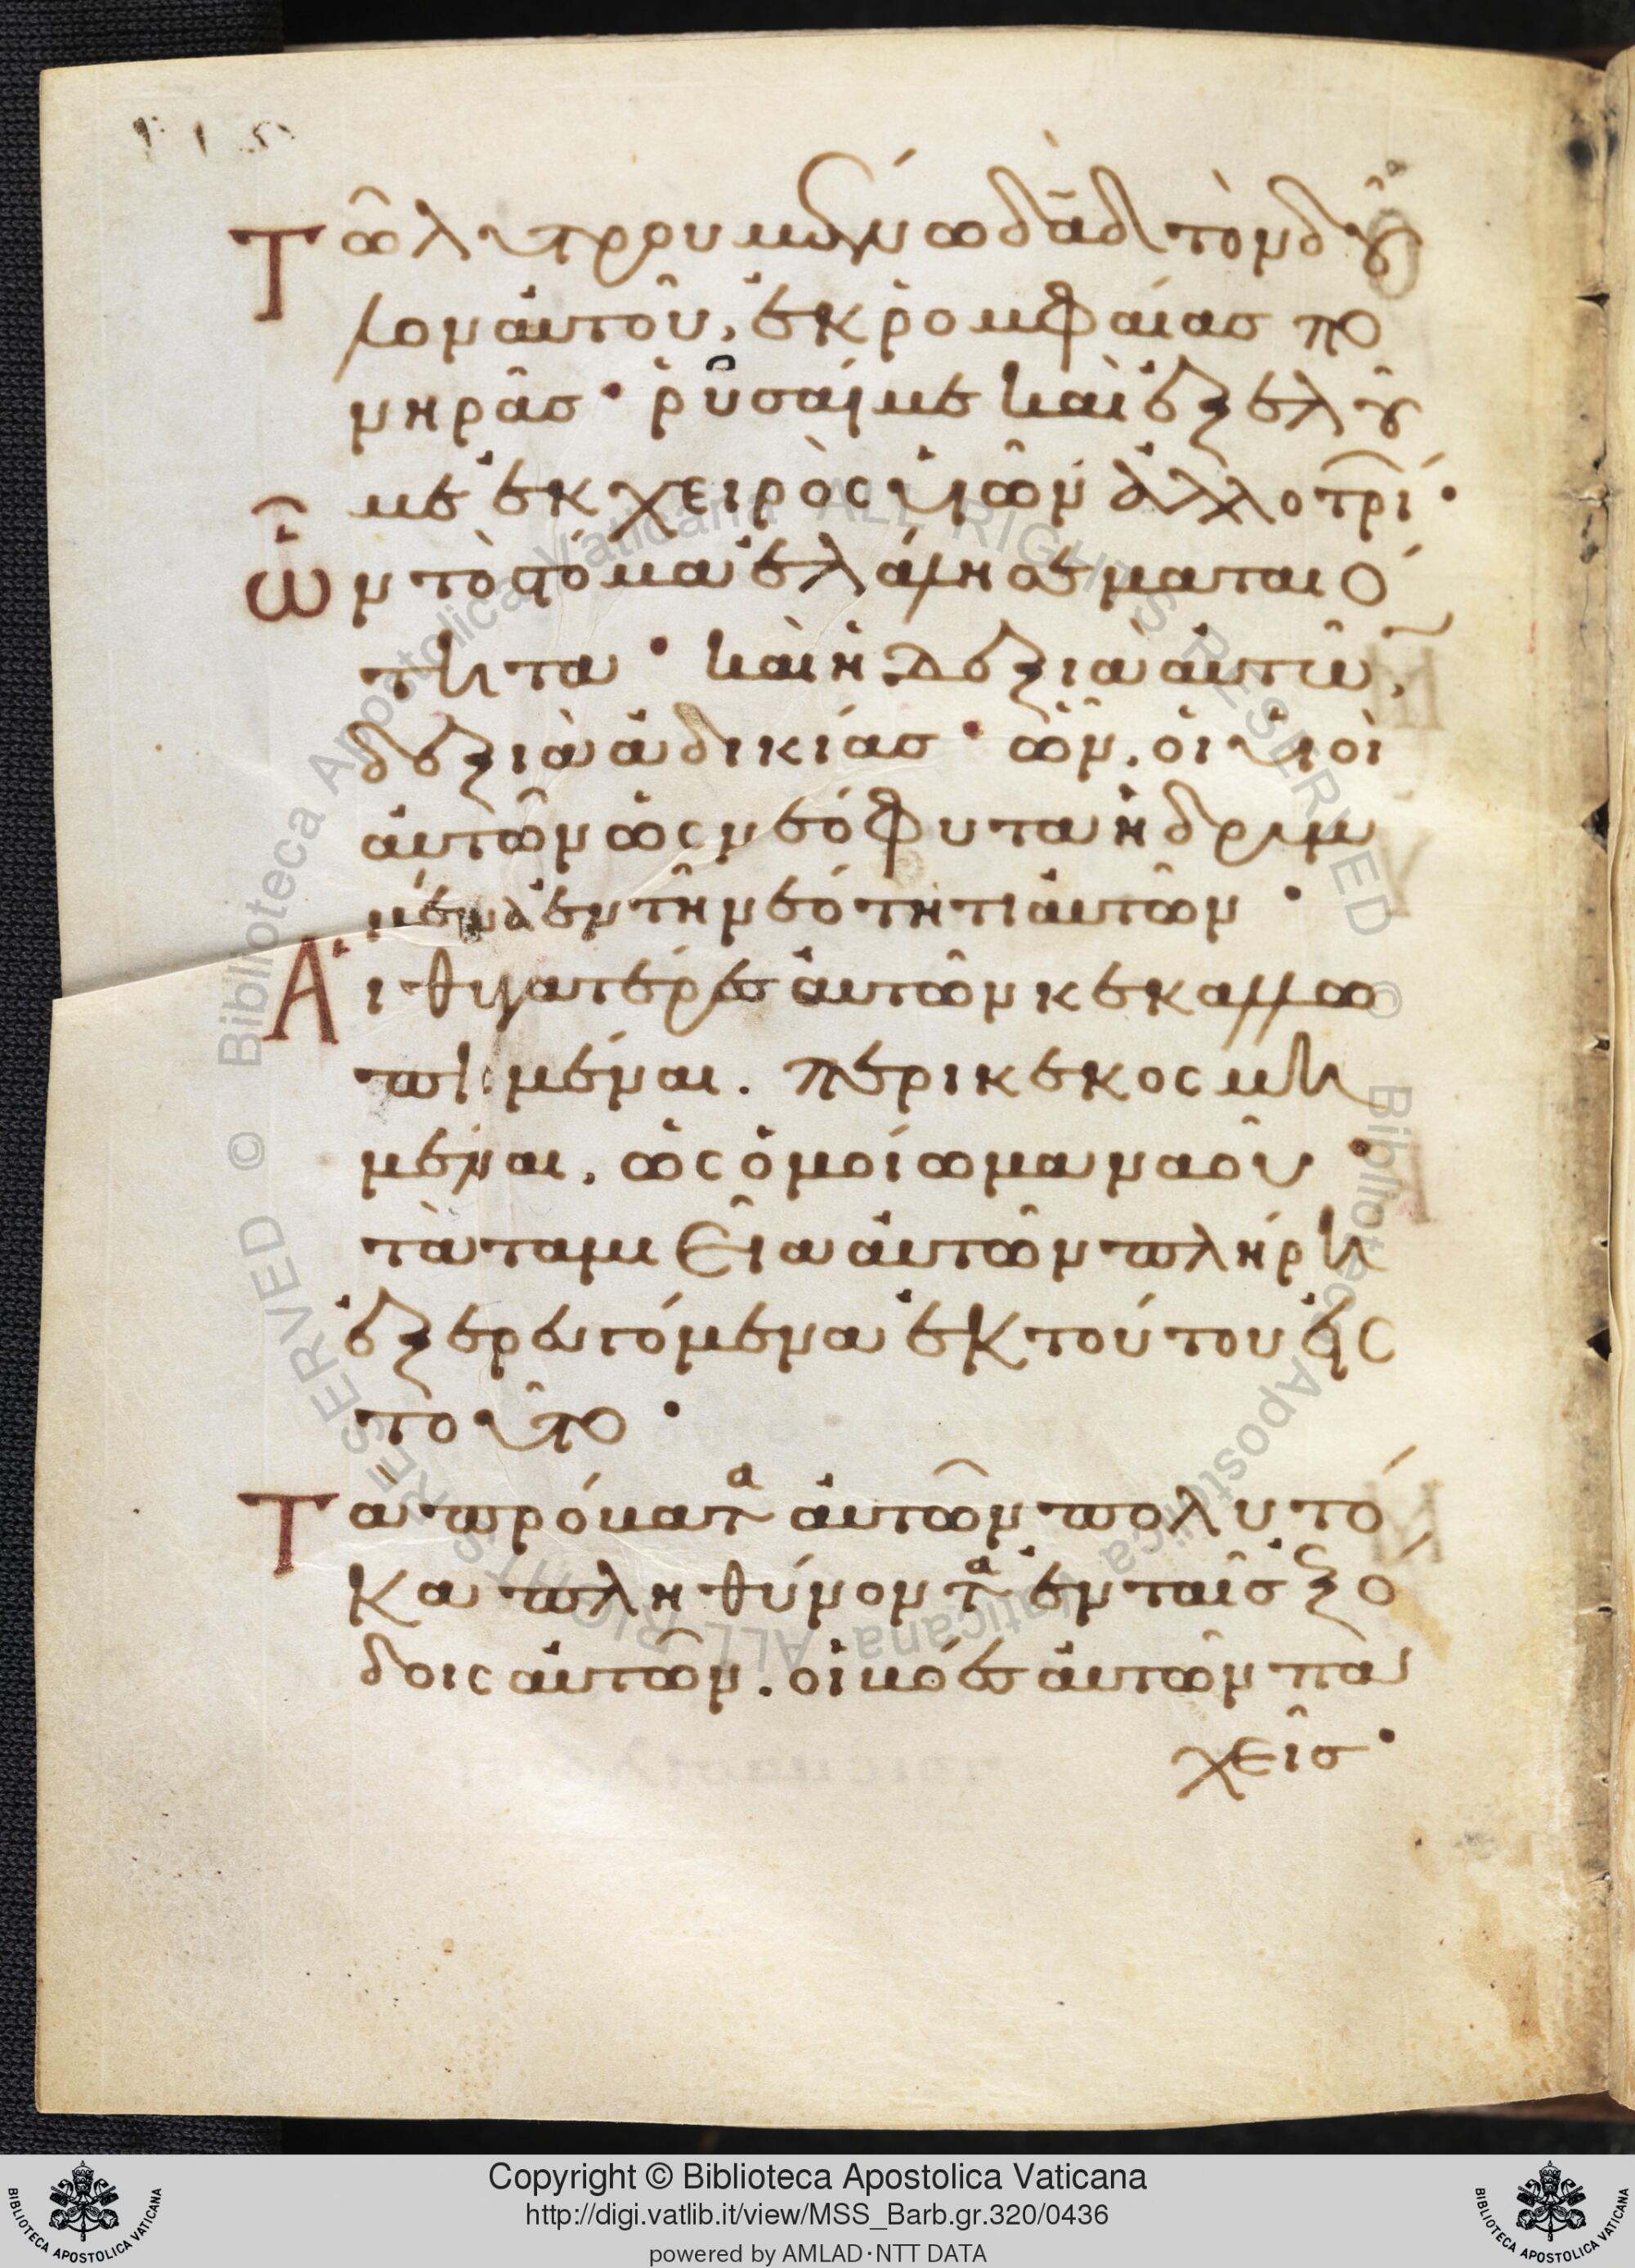 Τῶ λυτρουμένω δᾱδ τὸν δοῦ
λον ἀυτοῦ, ἐκ ῥομφαίασ πο
νηρᾶσ · ῥῦσαί με καὶ ἐξελοῦ
με ἐκ χειρὸς υἱῶν ἀλλοτρί ·
ὧν τὸ στόμα ἐλάλησε ματαιό
τητα · καὶ ἡ δεξιὰ ἀυτῶ,
δεξιὰ ἀδικίασ · ὧν, οἱ υἱοὶ
ἀυτῶν ὡς νεόφυτα ἡδρυμ
μένα ἐν τῆ νεότητι ἀυτῶν ·
Ἁι θυγατέρες ἀυτῶν κεκαλλω
πημέναι. περικεκοσμη
μέναι, ὡς ὁμοίωμα ναοῦ ·
τὰ ταμιεῖα ἀυτῶν πλήρη
ἐξερευγόμενα ἐκ τούτου εἰς
τοῦτο ·
Τὰ πρόβατα ἀυτῶν πολυτό
κα πληθύνοντα ἐν ταῖσ ἐξό
δοις ἀυτῶν. οἱ βόες ἀυτῶν πα
χεῖσ ·
Copyright © Biblioteca Apostolica Vaticana
http://digi.vatlib.it/view/MSS_Barb.gr.320/0436
powered by AMLAD·NTT DATA
BIBLIOTECA APOSTOLICA VATICANA
BIBLIOTECA APOSTOLICA VATICANA